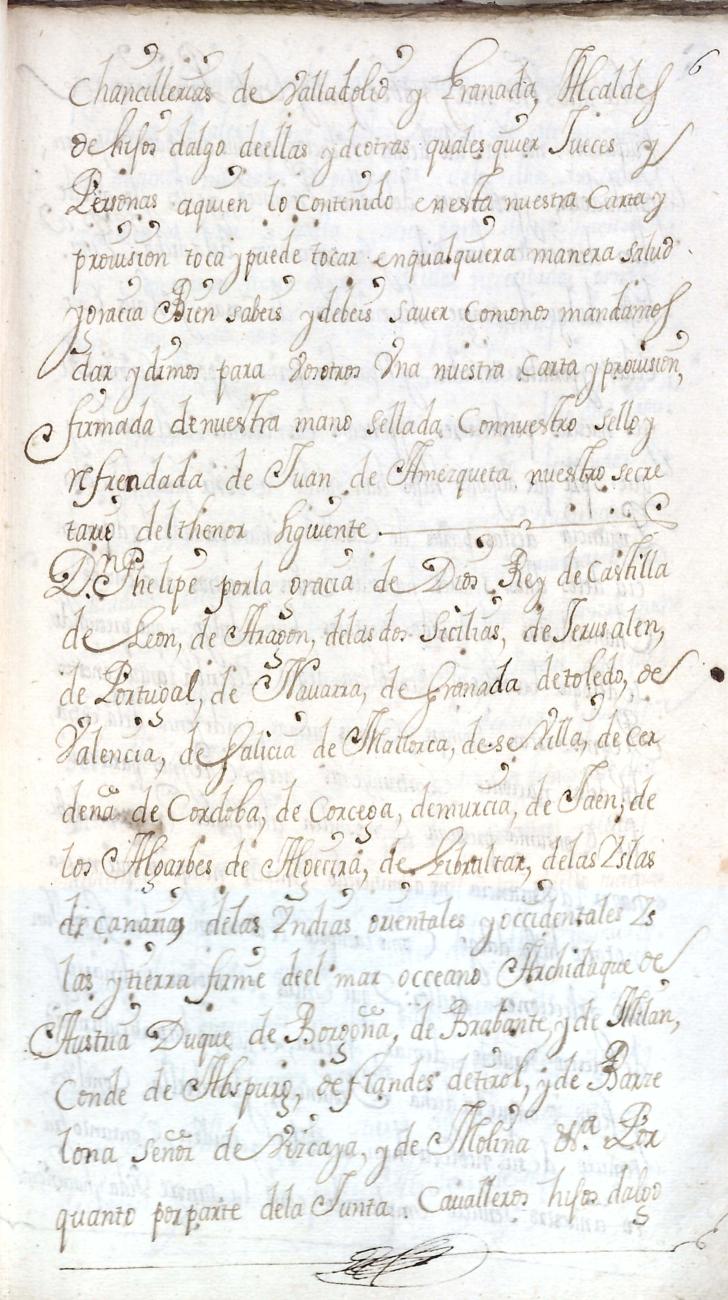 6
Chancillerias de Valladolid y Granada, Alcaldes
de hijos dalgo deellas y deotras quales quier Jueces y
Personas aquien lo contenido enesta nuestra Carta y
provision toca y puede tocar enqualquiera manera salud
y gracia Bien sabeis y debeis saver comonos mandamos
dar y dimos para Vosotros Una nuestra Carta y provision,
firmada denuestra mano sellada Connuestro sello y
refrendada de Juan de Amezqueta nuestro secre
tario delthenor siguiente
Dn. Phelipe porla gracia de Dios Rey de Castilla
de Leon, de Aragon, delas dos Sicilias, de Jerusalen,
de Portugal, de Navarra, de Granada de toledo, de
Valencia, de Galicia de Mallorca, de se Villa, de Cer
deña de Cordoba, de Corcega, demurcia, de Jaen, de
los Algarbes de Algecira, de Gibraltar, delas Yslas
de canarias delas Yndias orientales y occidentales Ys
las y tierra firme deel mar occeano Archiduque de
Austria Duque de Borgoña, de Brabante y de Milan,
Conde de Abspurg, de flandes detirol, y de Barze
lona señor de Vizcaya, y de Molina &.a Por
quanto porparte dela Junta Cavalleros hijos dalgo